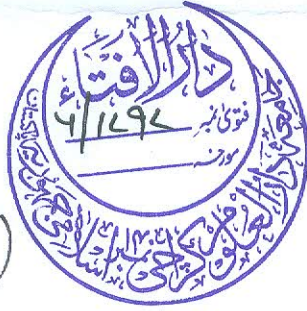 دارُالافتاء
فتویٰ نمبر ۶/۱۷۹۷
مورخہ
جامعہ دارالعلوم کراچی نمبر ۱۴ اسلامی جمہوریہ پاکستان